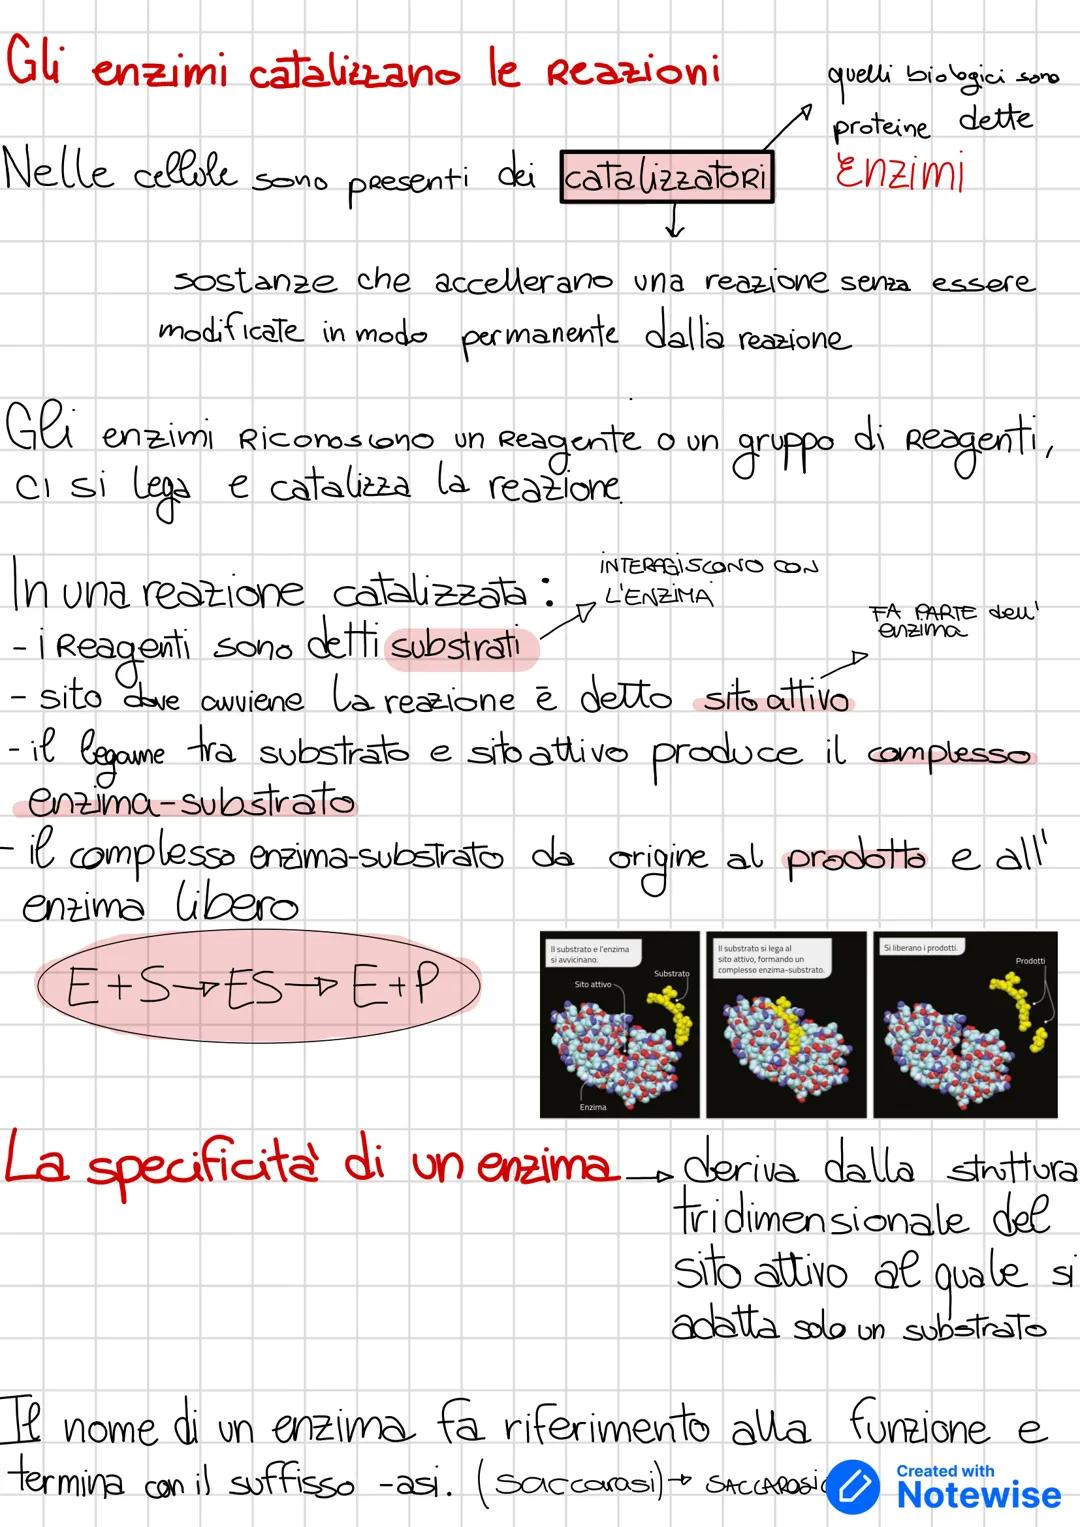 Gli enzimi catalizzano le Reazioni
quelli biologici sono
proteine dette
Enzimi
Nelle cellule sono presenti dei catalizzatori
sostanze che accellerano una reazione senza essere
modificate in modo permanente dalla reazione
Gli enzimi Riconoscono un Reagente o un gruppo di Reagenti,
ci si lega e catalizza la reazione
In una reazione catalizzata:
INTERAGISCONO CON
L'ENZIMA
- i Reagenti sono detti substrati
FA PARTE dell'
enzima
- sito dove avviene la reazione è detto sito attivo
- il legame tra substrato e sito attivo produce il complesso
enzima-substrato
- il complesso enzima-substrato da origine al prodotto e all'
enzima libero
E+S→ES→E+P
Il substrato e l'enzima
si avvicinano.
Substrato
Sito attivo
Enzima
Il substrato si lega al
sito attivo, formando un
complesso enzima-substrato.
Si liberano i prodotti.
Prodotti
La specificità di un enzima → deriva dalla struttura
tridimensionale del
sito attivo al quale si
adatta solo un substrato
Il nome di un enzima fa riferimento alla funzione e
termina con il suffisso -asi. (saccarasi)→
Created with
Notewise